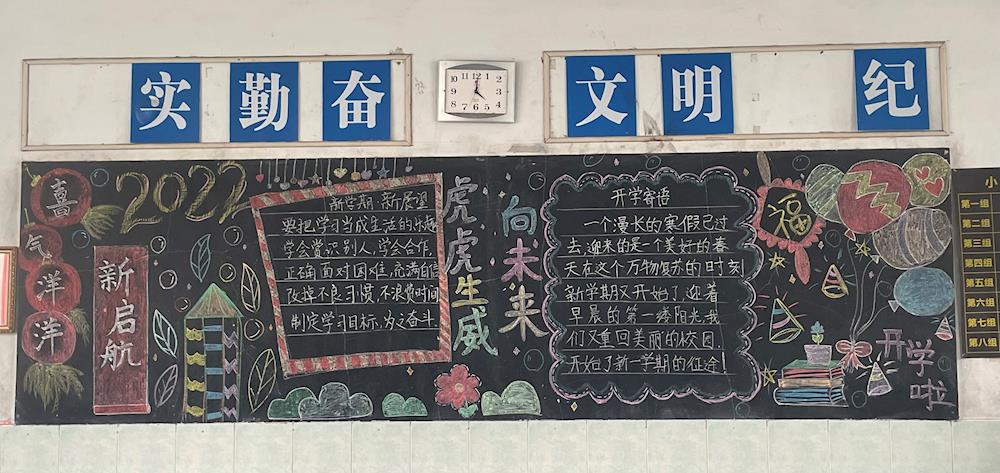 实 勤 奋
文 明 纪
10 11 12 1 2
9 3
8 7 6 5 4
喜气洋洋
2022
新启航
新学期 新展望
要把学习当成生活的乐趣
学会赏识别人,学会合作,
正确面对困难,充满自信
改掉不良习惯,不浪费时间
制定学习目标,为之奋斗
虎虎生威
向未来
开学寄语
一个漫长的寒假已过
去,迎来的是一个美好的春
天在这个万物复苏的日时刻
新学期又开始了,迎着
早晨的第一缕阳光,我
们又重回美丽的校园,
开始了新一学期的征途!
福
开学啦
小
第一组
第二组
第三组
第四组
第五组
第六组
第七组
第八组